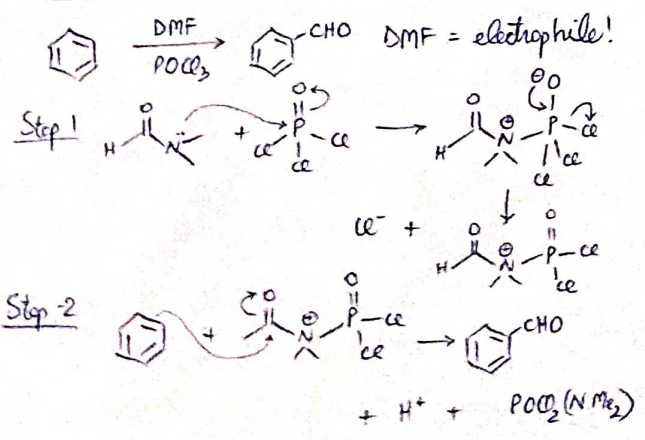 DMF
POCl₃
CHO DMF = electrophile!
Step 1
O
H N
+
O
P
Cl Cl Cl
⊖O
O
H N⊕ P Cl
Cl
Cl
Cl⁻ +
O O
H N⊕ P-Cl
Cl
Step-2
+
O
N⊕
O
P-Cl
Cl
CHO
+ H⁺ + POCl₂(NMe₂)